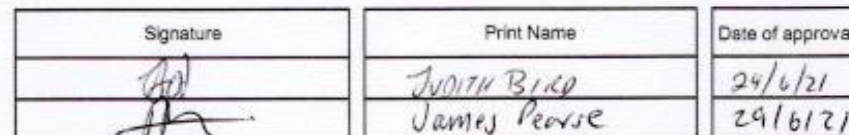 Signature Print Name Date of approva
JUDITH BIRD 24/6/21
James Pearse 29/6/21